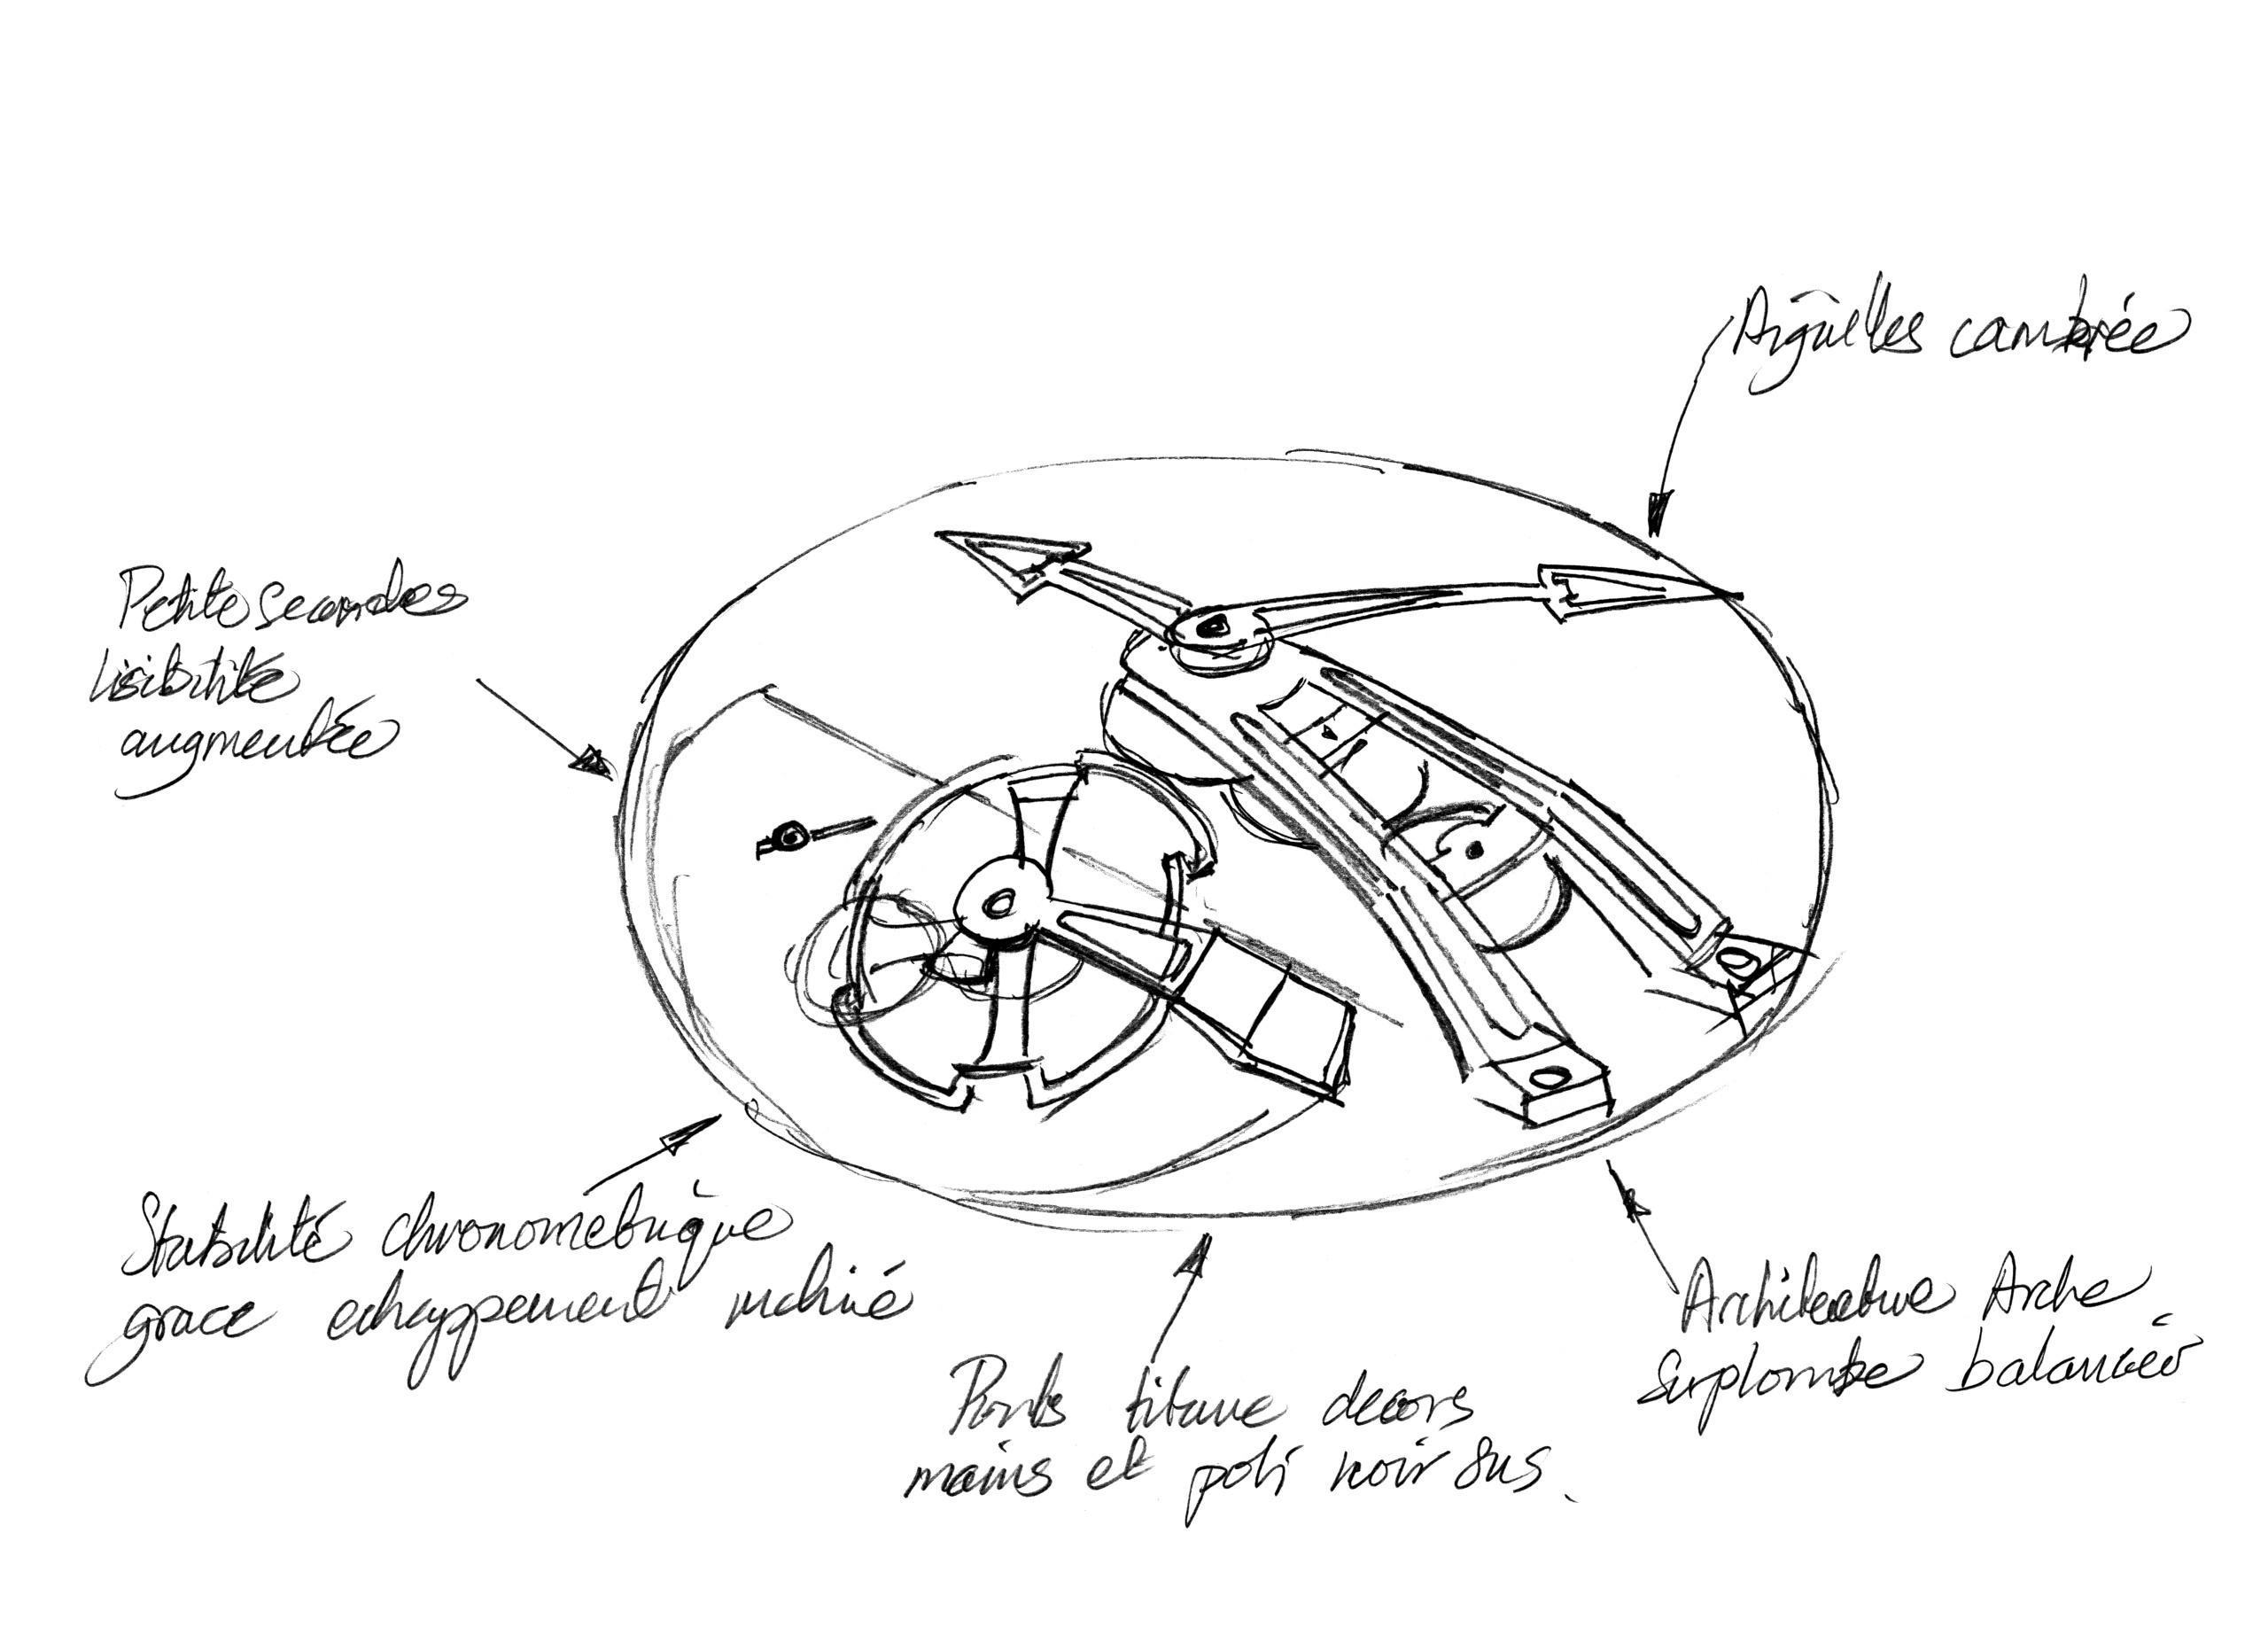 Aigûilles cambrée
Petite secondes
lisibilité
augmentée
Stabilité chronometrique
grace echappement incliné
Ponts titane decors
mains et poli noir sus.
Architecture Arche
Surplombe balancier